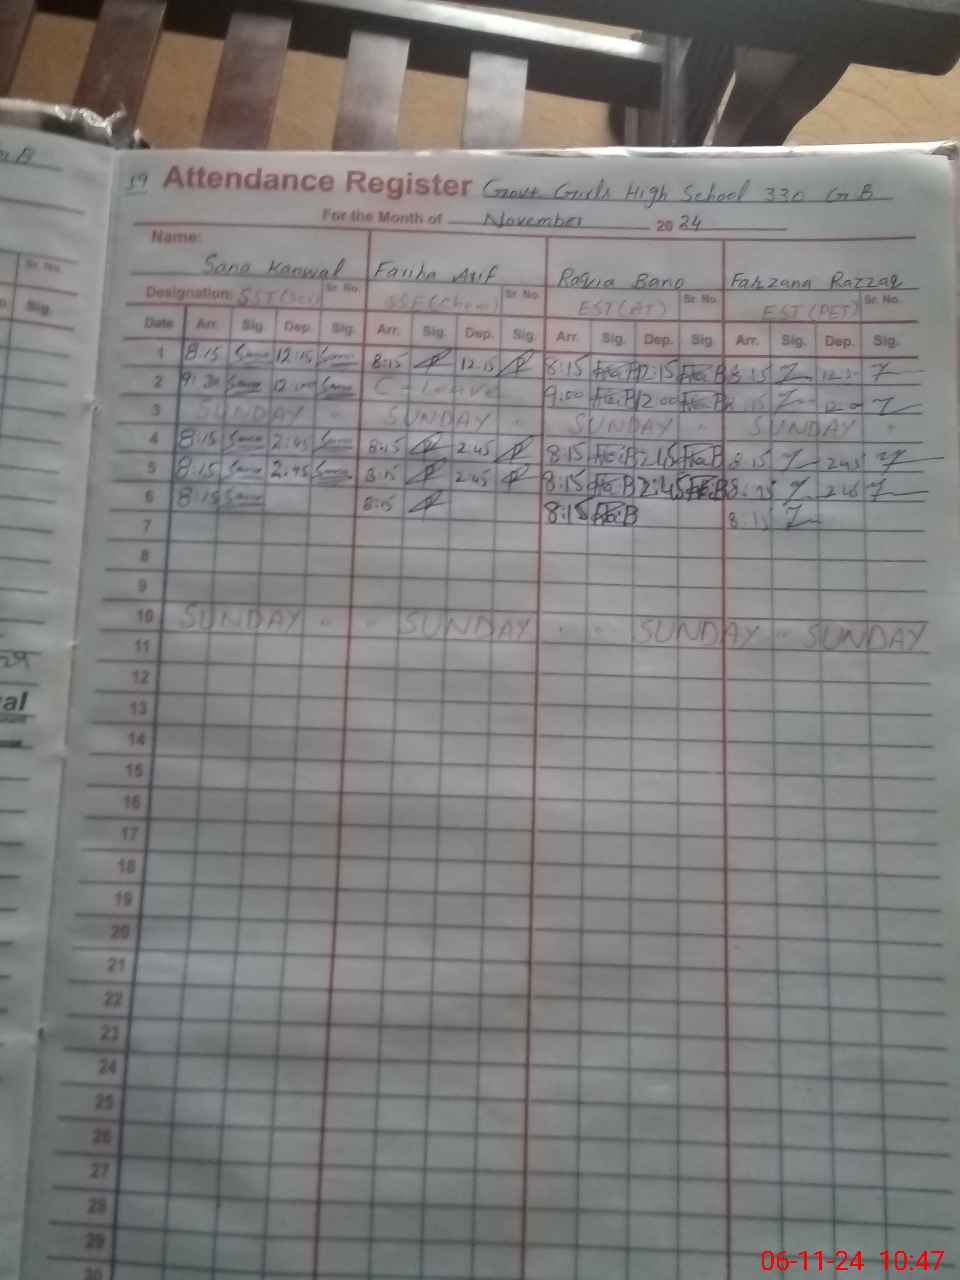 59 Attendance Register Govt. Girls High School 330 G.B
For the Month of November 2024
Name:
Sana Kanwal Fariha Arif Roqia Bano Farzana Razzaq
Designation: SST Sr. No. SSE (Chem) Sr. No. EST (AT) Sr. No. EST (PET) Sr. No.
Date Arr. Sig. Dep. Sig. Arr. Sig. Dep. Sig. Arr. Sig. Dep. Sig. Arr. Sig. Dep. Sig.
1 8:15 Sana 12:15 Sana 8:15 12:15 8:15 12:15 8:15
2 Sana 12:00 Sana C-Leave 9:00 12:00
3 SUNDAY " SUNDAY " SUNDAY " SUNDAY "
4 8:15 Sana 2:45 Sana 8:15 2:45 8:15 2:45 8:15 2:45
5 8:15 Sana 2:45 Sana 8:15 2:45 8:15 2:45 8:15 2:45
6 8:15 Sana 8:15 8:15 8:15
7
8
9
10 SUNDAY " " SUNDAY " " SUNDAY " SUNDAY
11
12
13
14
15
16
17
18
19
20
21
22
23
24
25
26
27
28
29
30
Sr. No.
Sig.
06-11-24 10:47